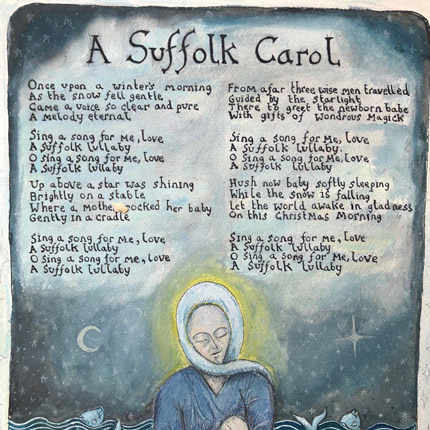 A Suffolk Carol
Once upon a winter's morning
As the snow fell gentle
Came a voice so clear and pure
A melody eternal
Sing a song for me, love
A Suffolk lullaby
O Sing a song for me, love
A Suffolk lullaby
Up above a star was shining
Brightly on a stable
Where a mother rocked her baby
Gently in a cradle
Sing a song for me, love
A Suffolk lullaby
O Sing a song for me, love
A Suffolk lullaby
From afar three wise men travelled
Guided by the starlight
There to greet the newborn babe
With gifts of Wondrous Magick
Sing a song for me, love
A Suffolk lullaby.
O Sing a song for me, love
A Suffolk lullaby
Hush now baby softly sleeping
While the snow is falling
Let the world awake in gladness
On this Christmas Morning
Sing a song for me, love
A Suffolk lullaby
O Sing a song for me, love
A Suffolk lullaby